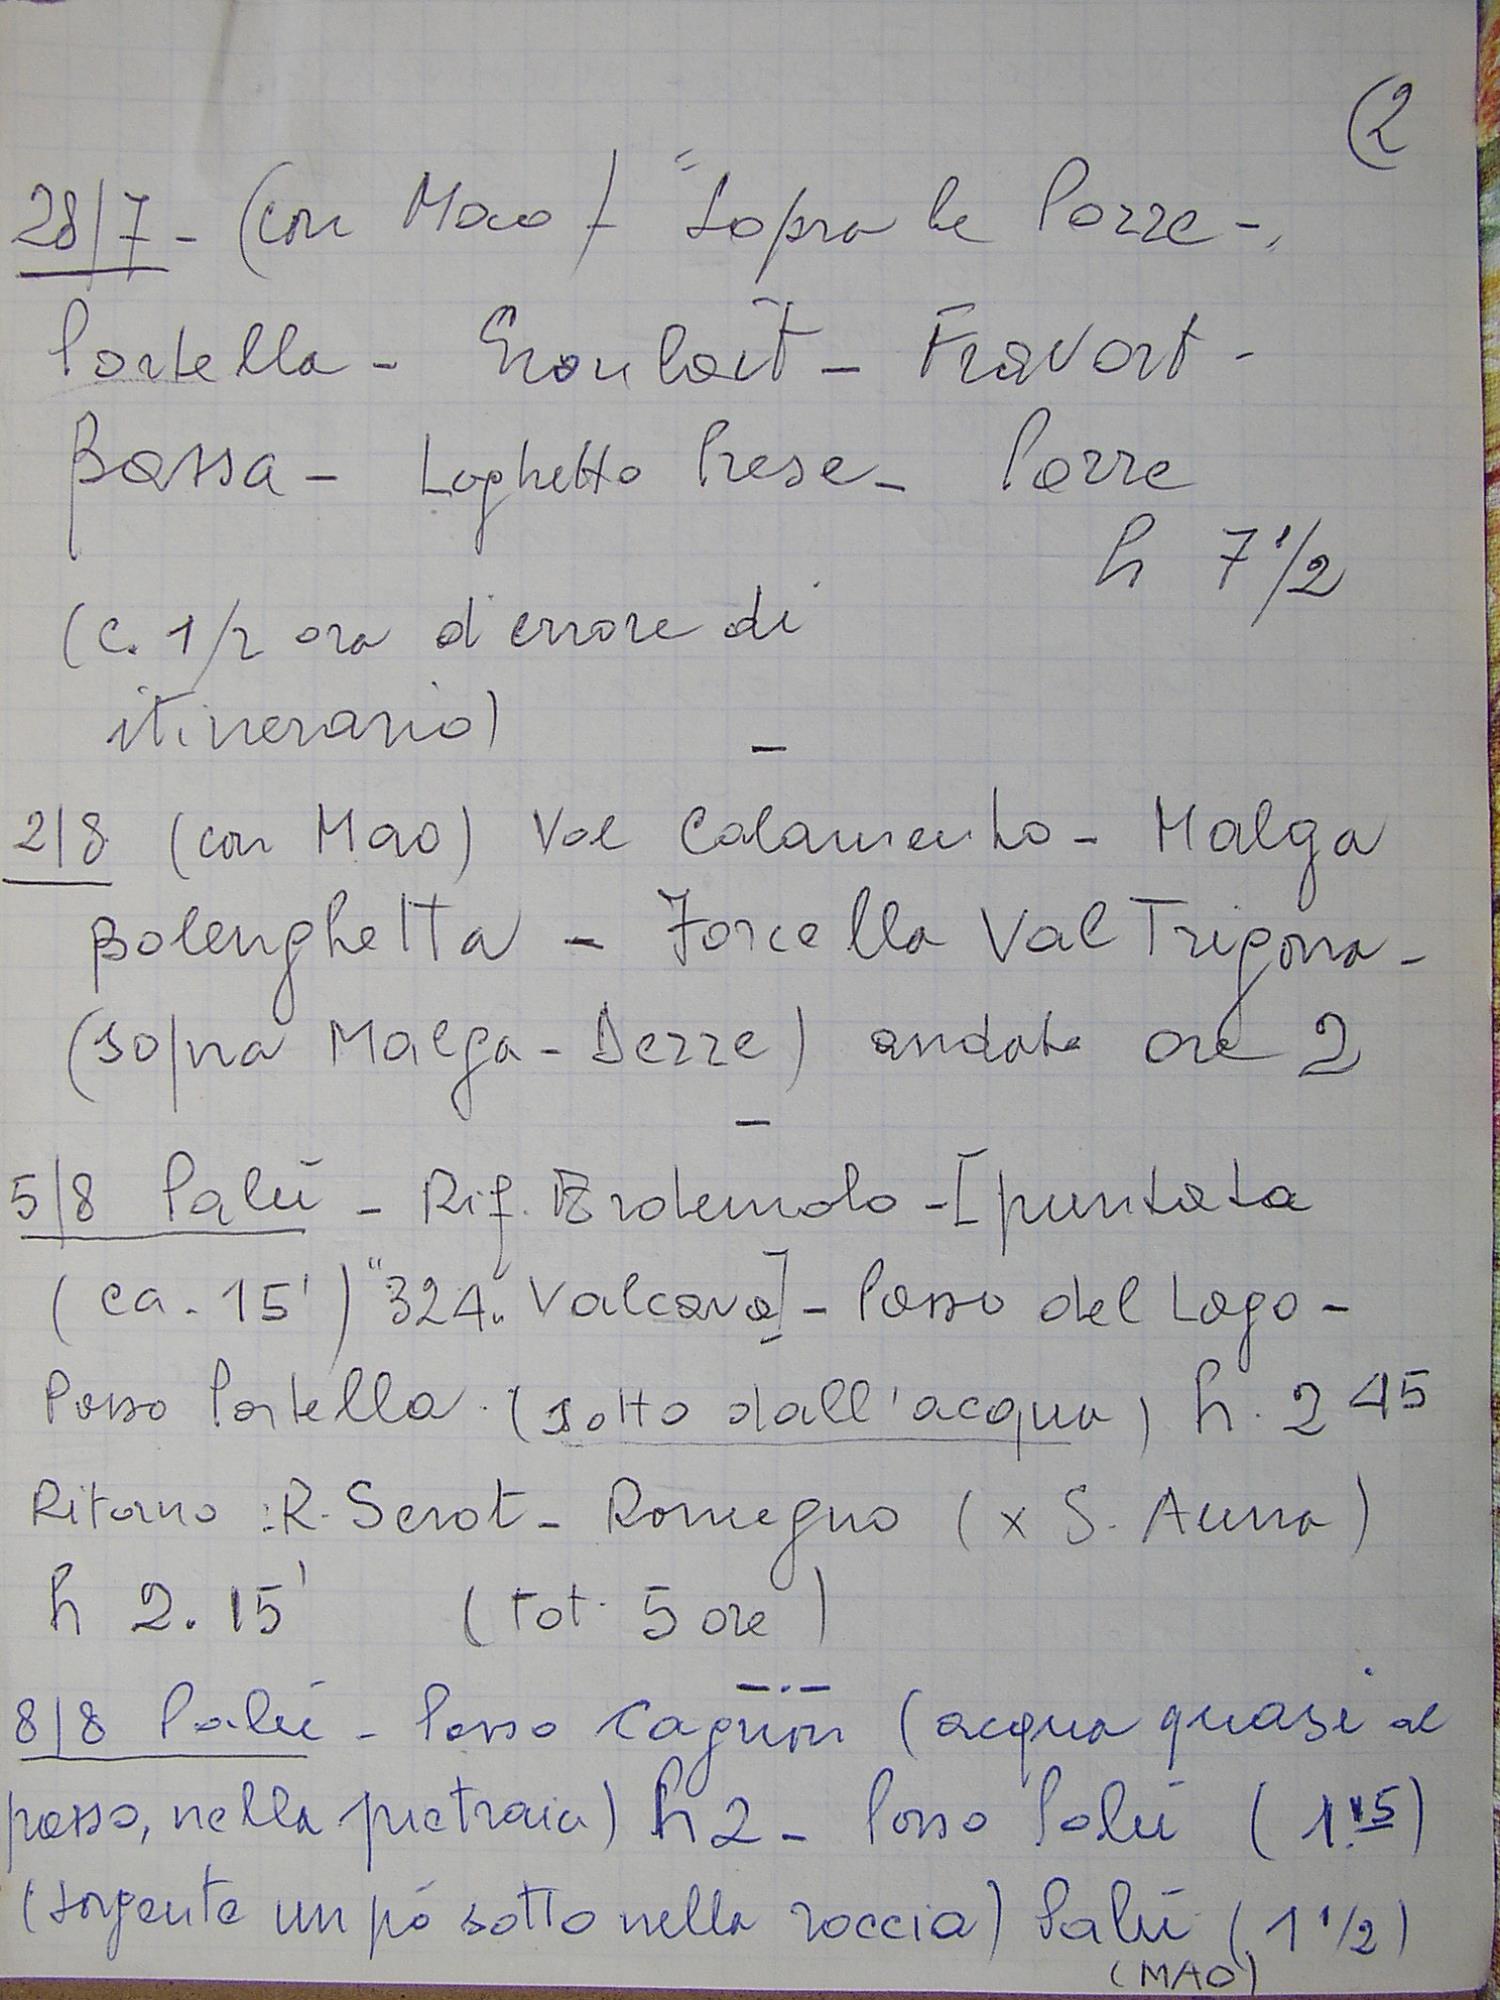 (2
28/7 - (con Mao) "Sopra le Pozze -
Portella - Gronlait - Fravort -
Bassa - Laghetto Prese - Pozze
h 7 1/2
(c. 1/2 ora d'errore di
itinerario)
-
2/8 (con Mao) Val Calamento - Malga
Bolenghetta - Forcella Val Trigona -
(sopra Malga - Dezze) andata ore 2
-
5/8 Palù - Rif. Erdemolo - [puntata
(ca. 15') "324" Valcava] - Passo del Lago -
Passo Portella (sotto dall'acqua) h. 2 45
Ritorno : R. Serot - Romegno (x S. Anna)
h 2.15' (tot. 5 ore)
-.-
8/8 Palù - Passo Cagnon (acqua quasi al
passo, nella pietraia) h 2 - Passo Palù (1.15)
(sorgente un pó sotto nella roccia) Palù (1 1/2)
(MAO)